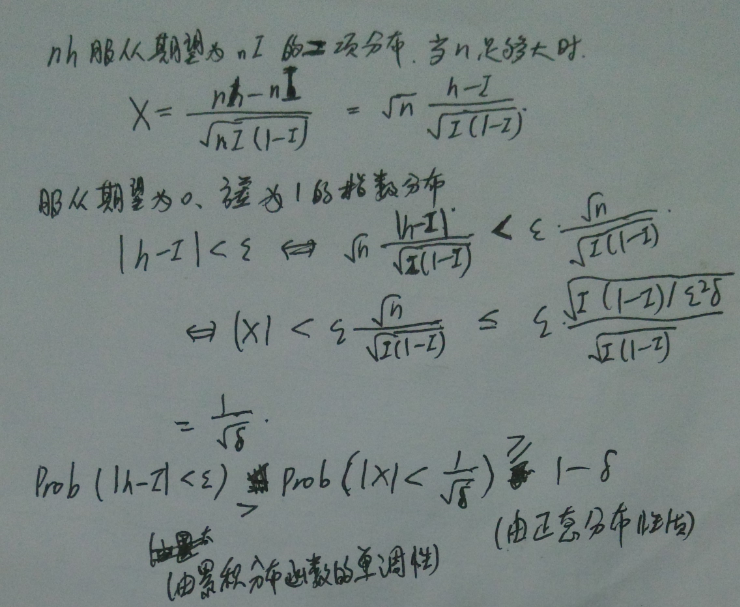 nh 服从期望为 nI 的二项分布. 当n足够大时.
X = \frac{nh-nI}{\sqrt{nI(1-I)}} = \sqrt{n} \frac{h-I}{\sqrt{I(1-I)}}.
服从期望为0、方差为1的指数分布
|h-I| < ε ⇔ \sqrt{n} \frac{|h-I|}{\sqrt{I(1-I)}} < ε \cdot \frac{\sqrt{n}}{\sqrt{I(1-I)}}.
⇔ |X| < ε \frac{\sqrt{n}}{\sqrt{I(1-I)}} ≤ ε \cdot \frac{\sqrt{I(1-I)/ε^2δ}}{\sqrt{I(1-I)}}
= \frac{1}{\sqrt{δ}}.
Prob(|h-I|<ε) ≥ Prob(|X| < \frac{1}{\sqrt{δ}}) ≥ 1-δ
(由累积分布函数的单调性) (由正态分布性质)